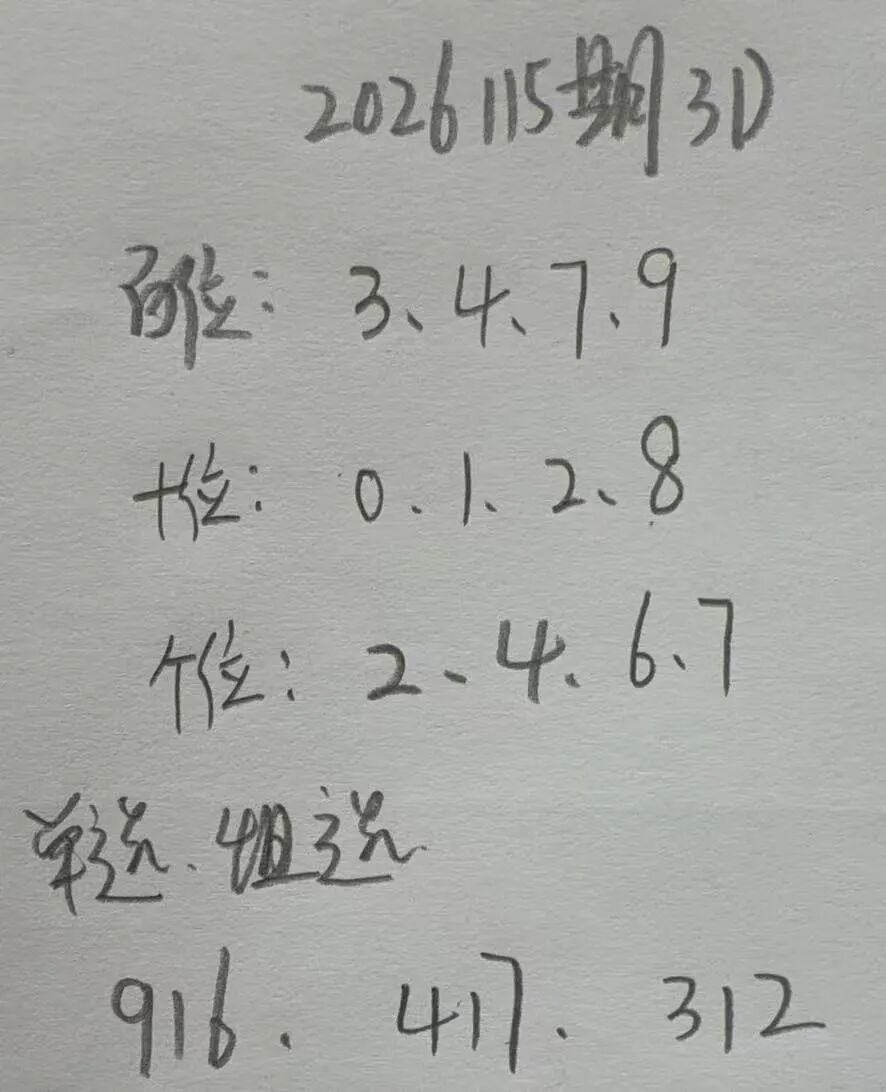 2026115期3D
百位：3、4、7、9
十位：0.1、2、8
个位：2、4、6、7
单选、组选
916. 417. 312